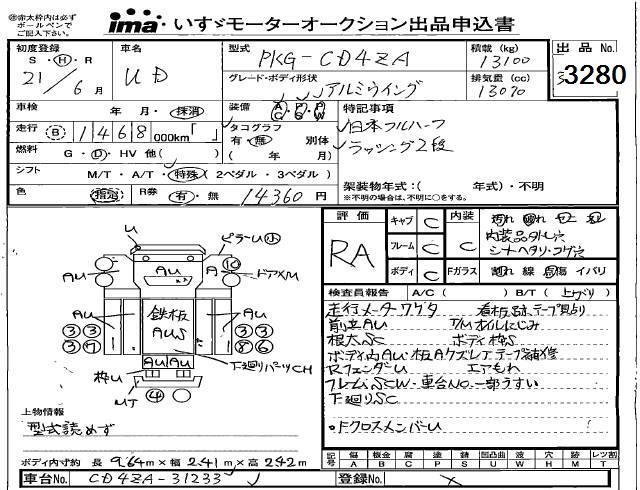 ㊟赤太枠内は必ず
ボールペンで
ご記入下さい。
ima・いすゞモーターオークション出品申込書
初度登録
S・H・R
21/6月
車名
UD
型式
PKG-CD4ZA
積載(kg)
13100
出品No.
3280
グレード・ボディ形状
アルミウイング
排気量(cc)
13070
車検
年 月・抹消
装備
A/C P/S P/W
特記事項
日本フルハーフ
ラッシング2段
走行
B 1468 000km「 」
タコグラフ
有・無 別体
( 年 月)
燃料
G・D・HV 他( )
シフト
M/T・A/T・特殊(2ペダル・3ペダル)
架装物年式:( 年式)・不明
※不明の場合は、不明に○をする。
色
指定
R券
有・無
14360円
評価
RA
キャブ C
フレーム C
ボディ C
内装 C
内装品外し穴
シートヘタリ・コゲ穴
Fガラス
割れ 線 点傷 イバリ
検査員報告
A/C( )
B/T(上がり)
走行メーターワゲタ
看板跡テープ貼り
前立AU
T/Mオイルにじみ
根太SC
ボディ枠S
ボディ内AU・板Aクズレアテープ補修
RフェンダーU
エアもれ
フレームSCW・車台No.一部うすい
下廻りSC
・FクロスメンバーU
U
ピラーU小
AU
AU
A
10
ドアメM
AU
鉄板
AUS
AU
3 3
3 7
3 3
8 6
AU AU
下廻りパーツCH
枠U
UT
4
上物情報
型式読めず
ボディ内寸約 長 9.64m×幅 2.41m×高 2.42m
記号
傷 A
板金 B
腐 C
塗 P
錆 S
凹凸曲 U
波 W
穴 H
痛 M
レツ割 T
車台No.
CD4ZA-31233
登録No.